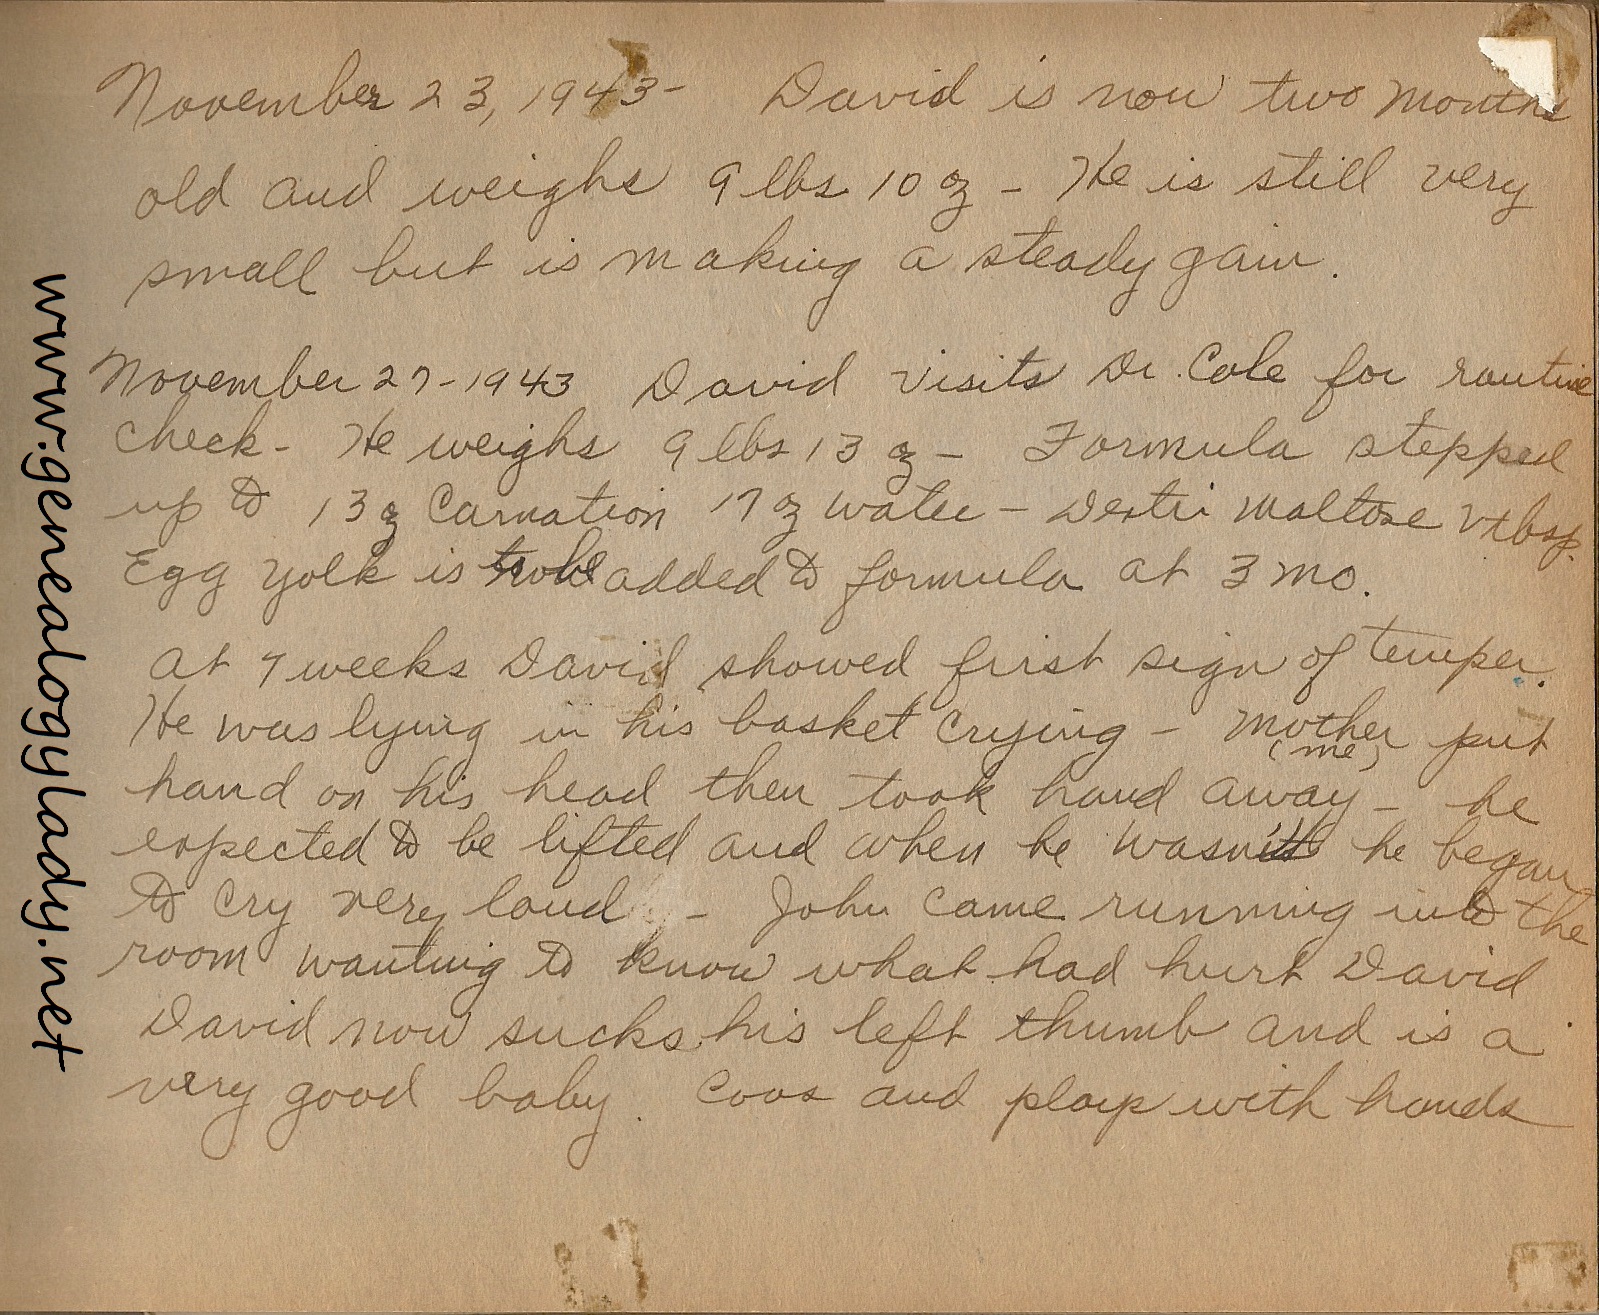 November 23, 1943- David is now two months
old and weighs 9 lbs 10 oz - He is still very
small but is making a steady gain.
November 27-1943 David visits Dr. Cole for routine
check- He weighs 9 lbs 13 oz - Formula stepped
up to 13 oz Carnation 17 oz water - Dextri Maltose tbsp.
Egg yolk is to be added to formula at 3 mo.
at 7 weeks David showed first sign of temper.
He was lying in his basket crying - Mother put
(me)
hand on his head then took hand away - he
expected to be lifted and when he wasn't he began
to cry very loud - John came running into the
room wanting to know what had hurt David
David now sucks his left thumb and is a
very good baby. Coos and plays with hands
www.genealogylady.net